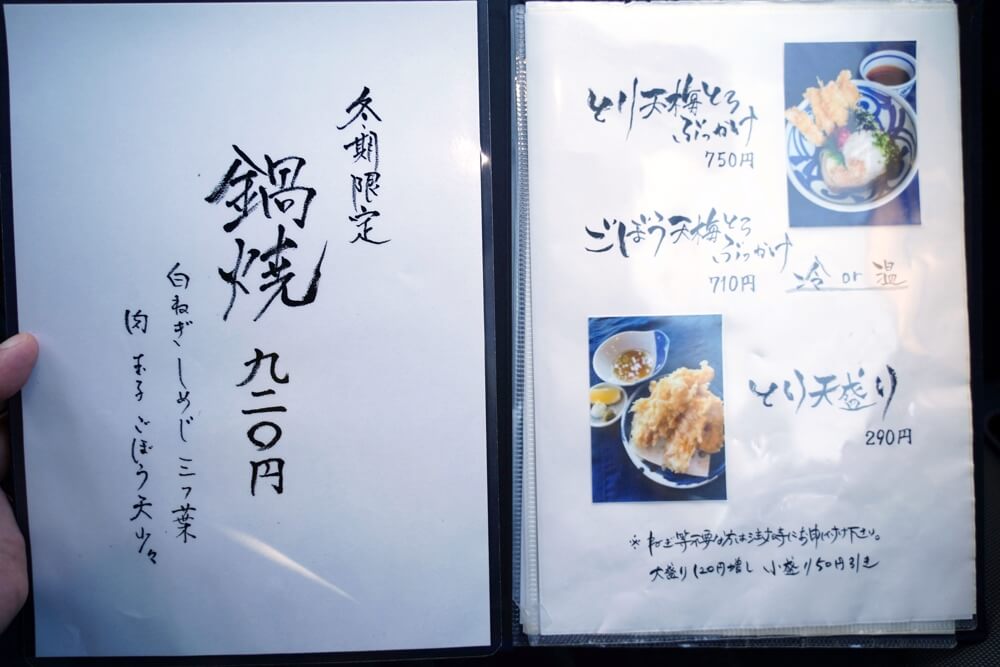 冬期限定
鍋焼 九二〇円
白ねぎ しめじ 三つ葉
肉 玉子 ごぼう天少々
とり天梅とろ
ぶっかけ
750円
ごぼう天梅とろ
ぶっかけ
710円
冷 or 温
とり天盛り
290円
※ねぎ等不要な方は注文時にお申し付け下さい。
大盛り120円増し 小盛り50円引き